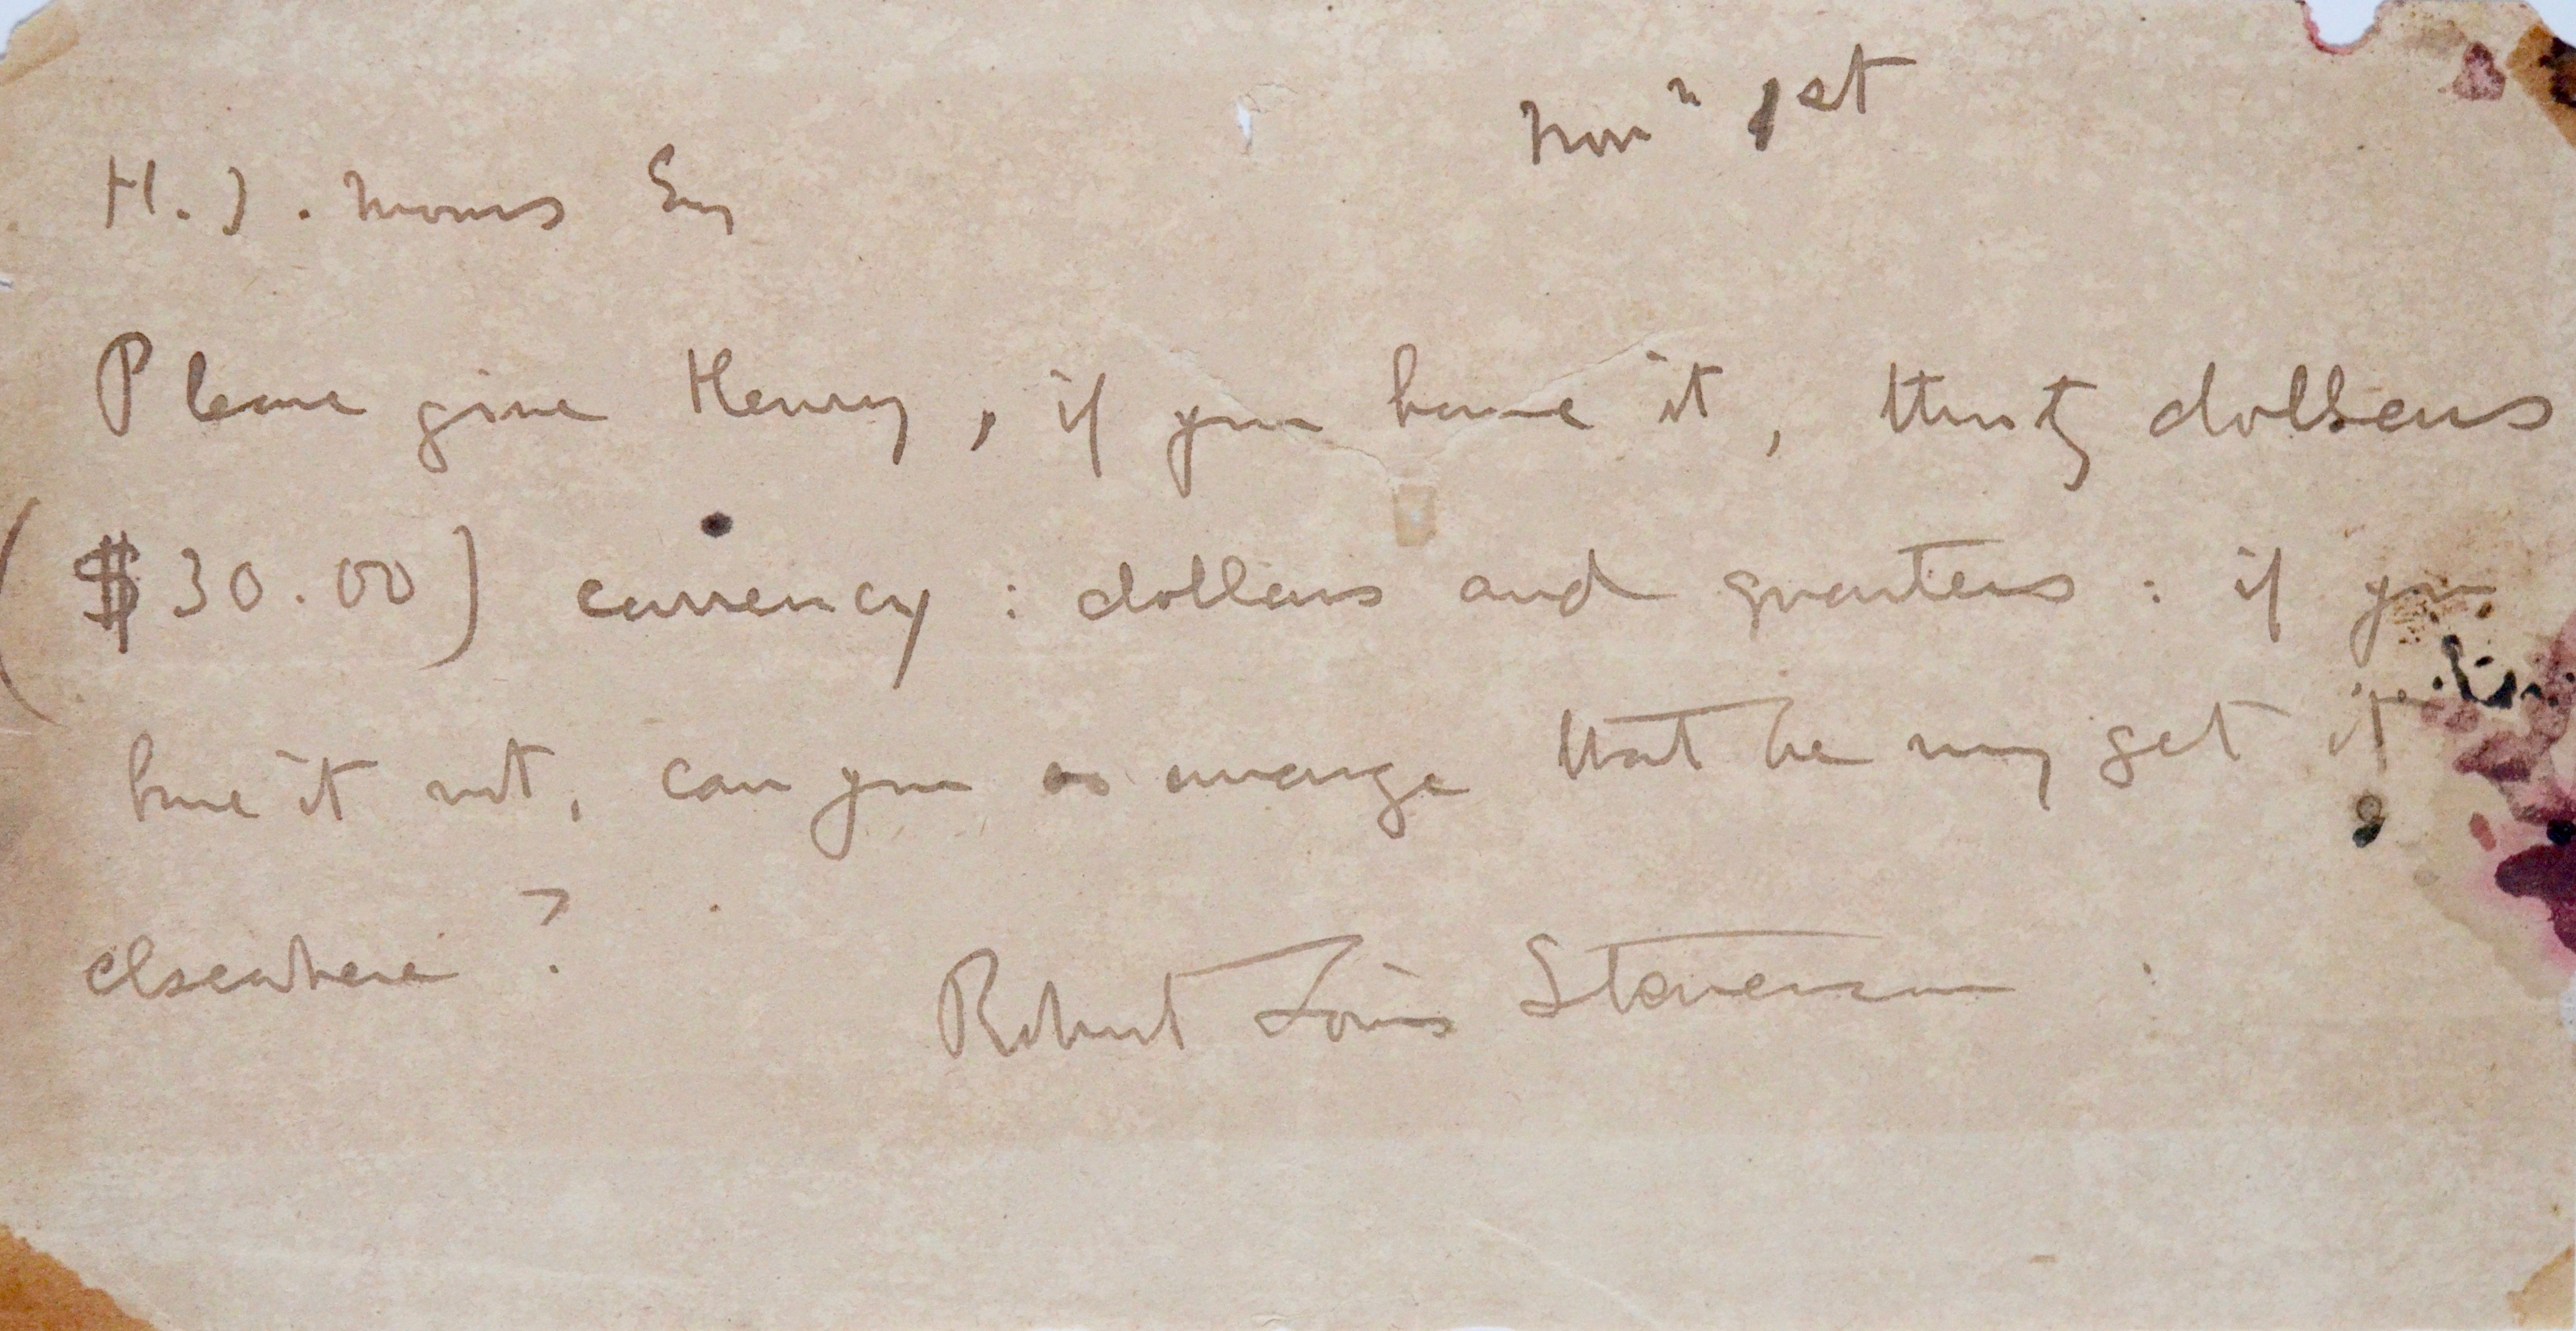 Novr 1st
H. J. Moors Esq
Please give Henry, if you have it, thirty dollars
($30.00) currency : dollars and quarters : if you
have it not, can you so arrange that he may get it
elsewhere?
Robert Louis Stevenson